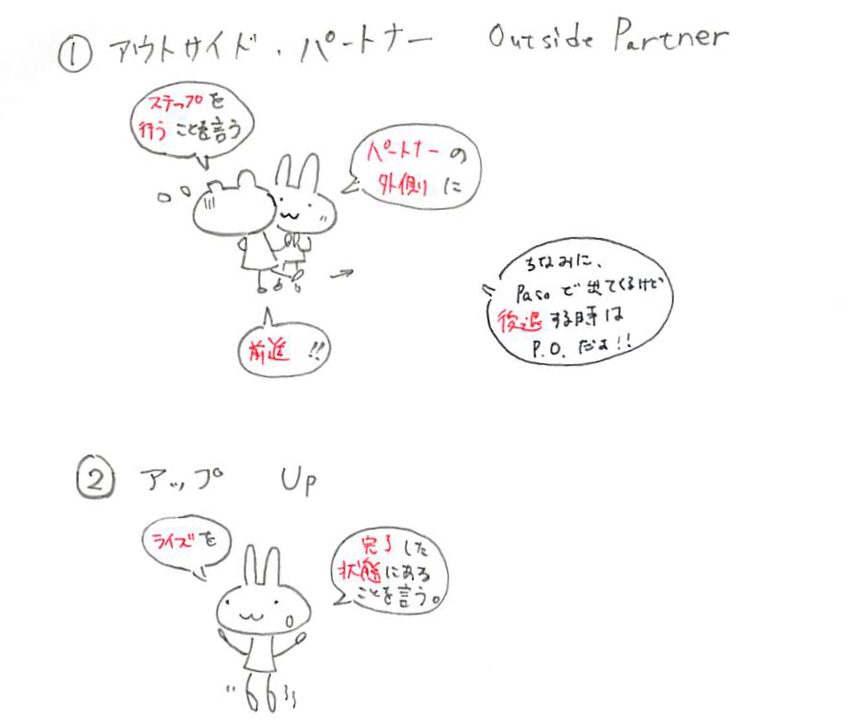 ① アウトサイド・パートナー Outside Partner
パートナーの
外側に
ステップを
行うことを言う
前進!!
ちなみに、
Pasoで出てくるけど
後退する時は
P.O.だよ!!
② アップ Up
ライズを
完了した
状態にある
ことを言う。